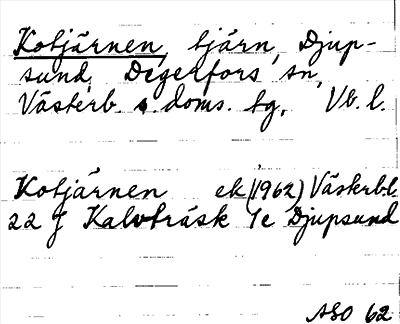 Kotjärnen, tjärn, Djup-
sund, Degerfors sn,
Västerb. s. doms. tg, Vb. l.
Kotjärnen ek (1962) Västerb.l.
22 J Kalvträsk 1e Djupsund
ASO 62